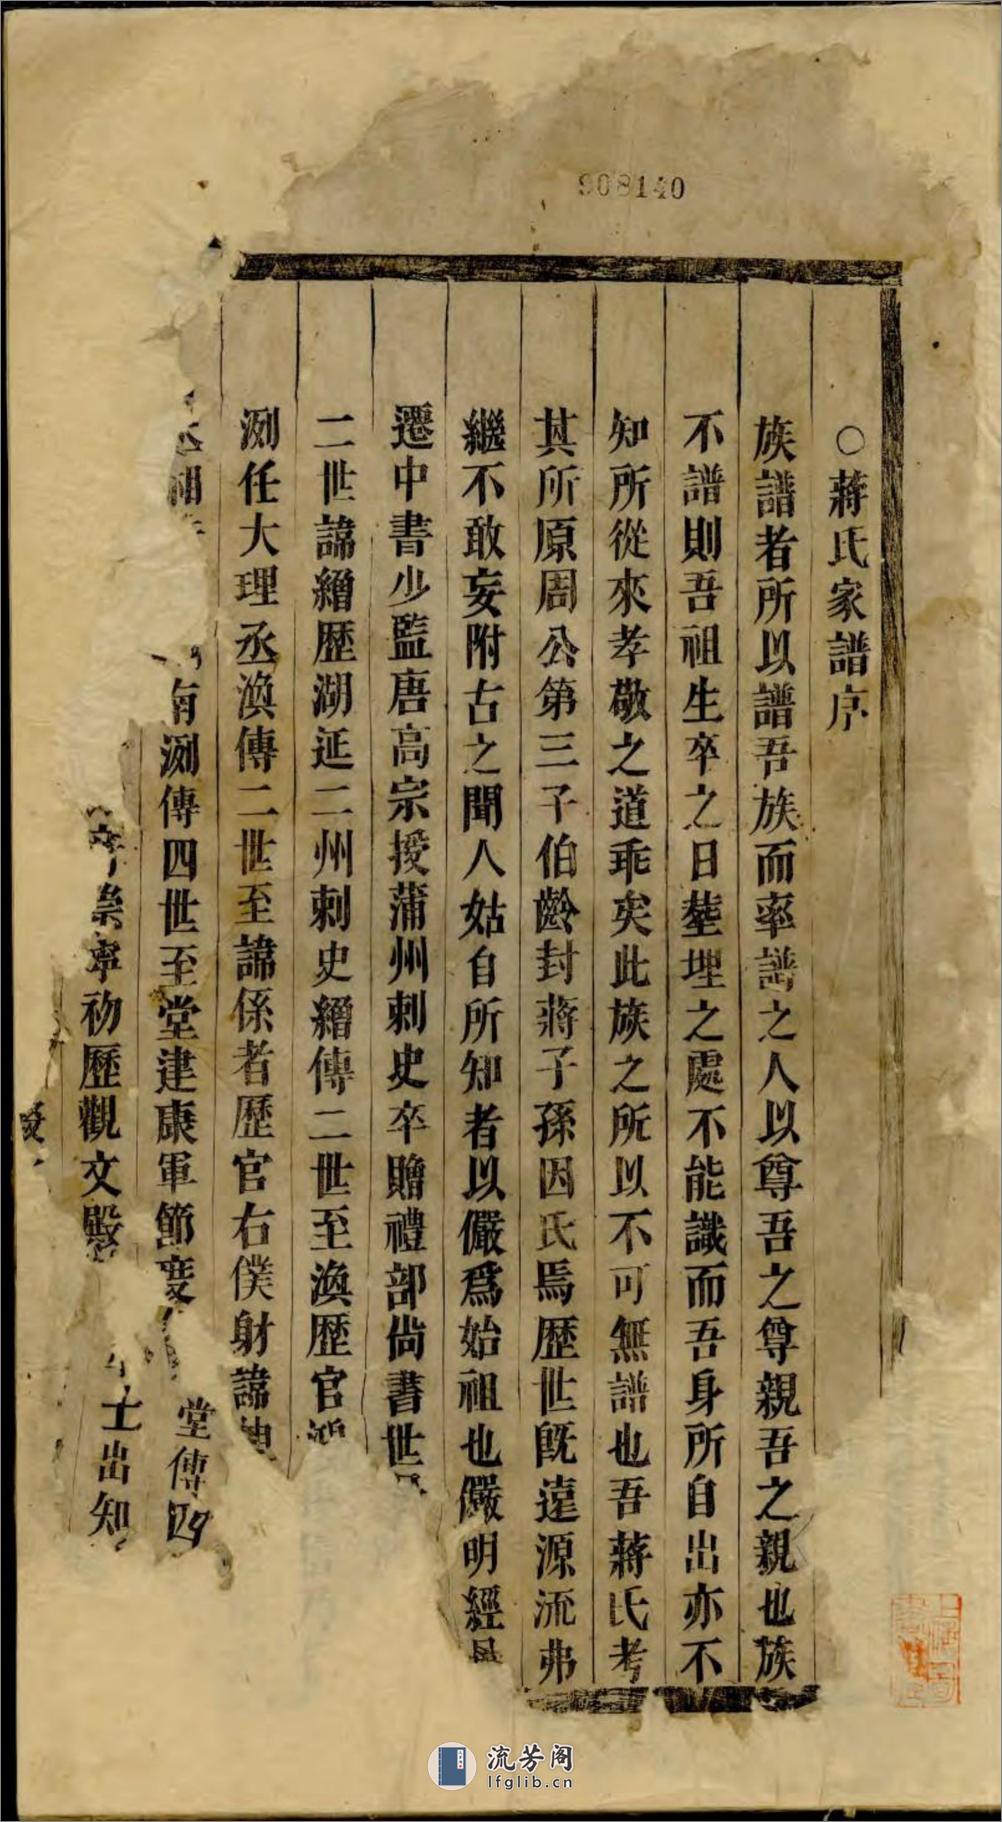 908140
○蔣氏家譜序
族譜者所以譜吾族而率譜之人以尊吾之尊親吾之親也族
不譜則吾祖生卒之日塟埋之處不能識而吾身所自出亦不
知所從來孝敬之道乖矣此族之所以不可無譜也吾蔣氏考
其所原周公第三子伯齡封蔣子孫因氏焉歷世既遠源流弗
繼不敢妄附古之聞人姑自所知者以儼爲始祖也儼明經
遷中書少監唐高宗授蒲州刺史卒贈禮部尚書世
二世諱繒歷湖延二州刺史繒傳二世至渙歷官鴻
洌任大理丞渙傳二世至諱係者歷官右僕射諱
南洌傳四世至堂建康軍節度 堂傳四
崇寧初歷觀文殿 士出知
流芳阁
lfglib.cn